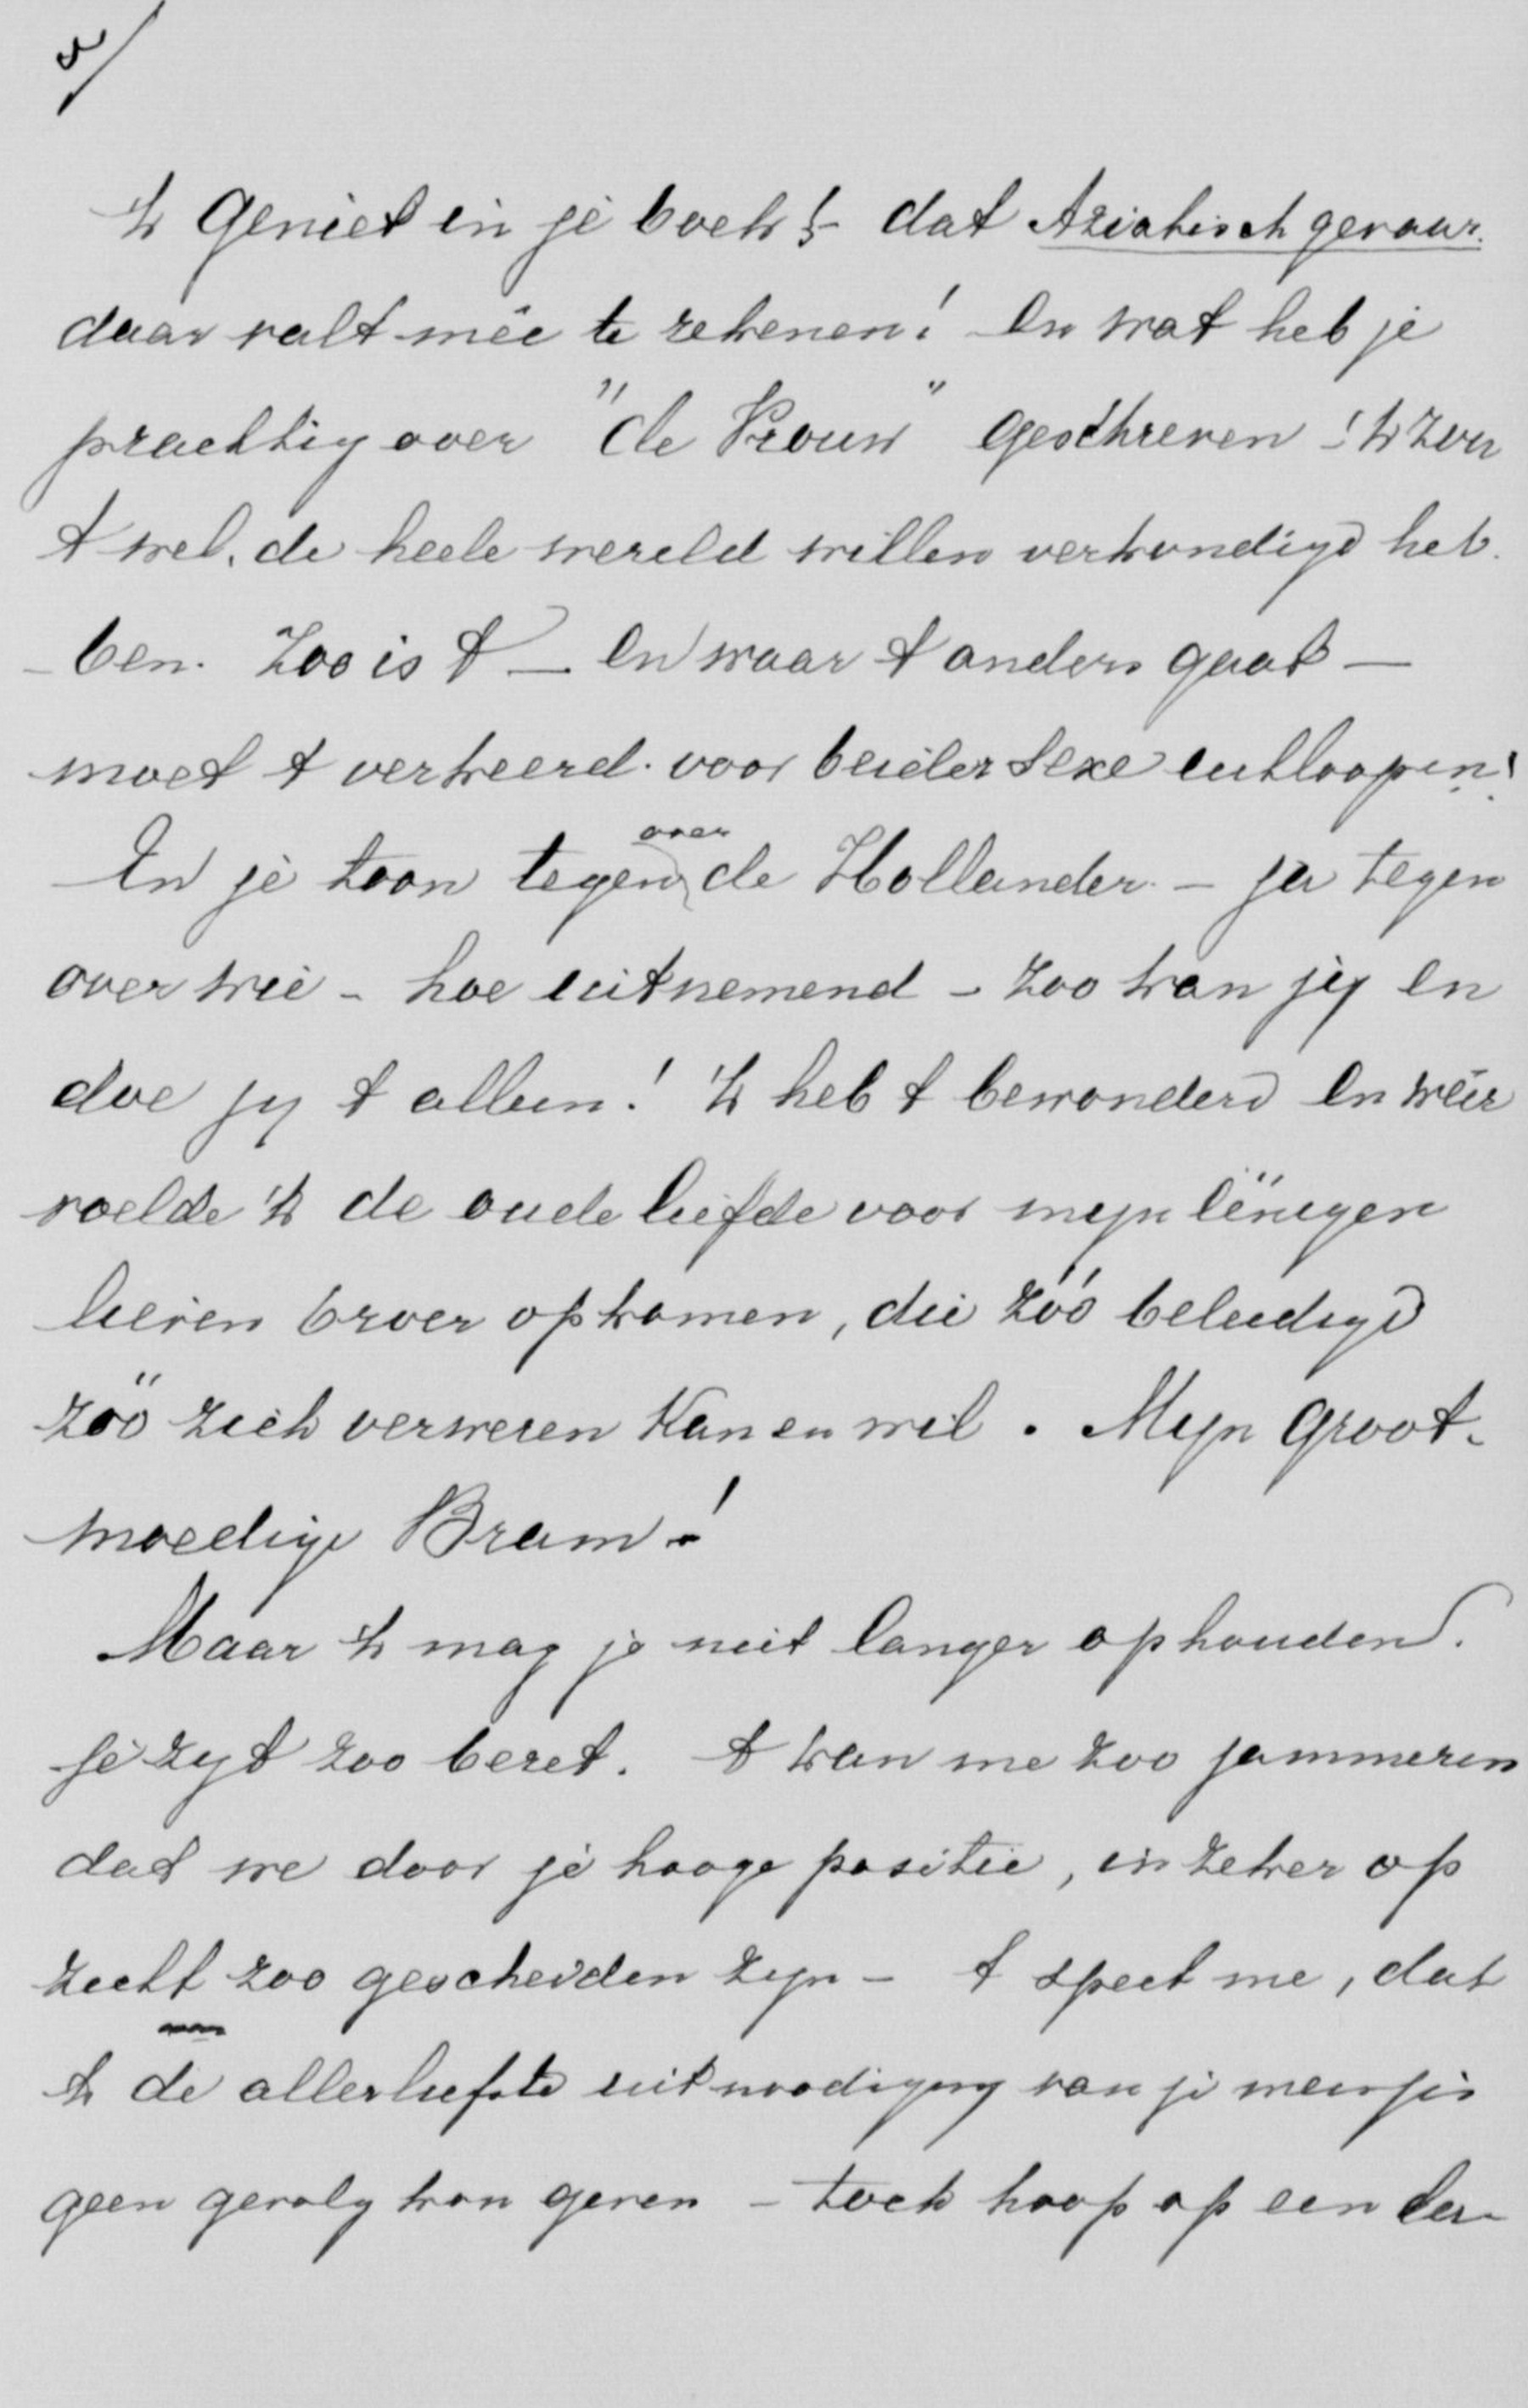 5/
'k Geniet in je boek! - dat Aziatisch gevaar.
daar valt mêe te rekenen! En wat heb je
prachtig over "de Vrouw" geschreven! 'k zou
't wel de heele wereld willen verkondigd heb-
-ben. Zoo is 't — En waar 't anders gaat —
moet 't verkeerd voor beider Sexe uitloopen!
En je toon tegenover de Hollander - ja tegen
over wie - hoe uitnemend - zoo kan jij en
doe jy 't alleen! 'k heb 't bewonderd en wéér
voelde 'k de oude liefde voor mijn ëenigen
lieven broer opkomen, die zóó beleedigd
zóó zich verweren Kan en wil. Mijn Groot-
moedige Bram!
Maar 'k mag je niet langer ophouden.
Je zijt zoo bezet. 't kan me zoo jammeren
dat we door je hooge positie, in zeker op
zicht zoo gescheiden zijn - 't speet me, dat
'k de allerliefste uitnoodiging van je meisjes
geen gevolg kon geven - toch hoop op een